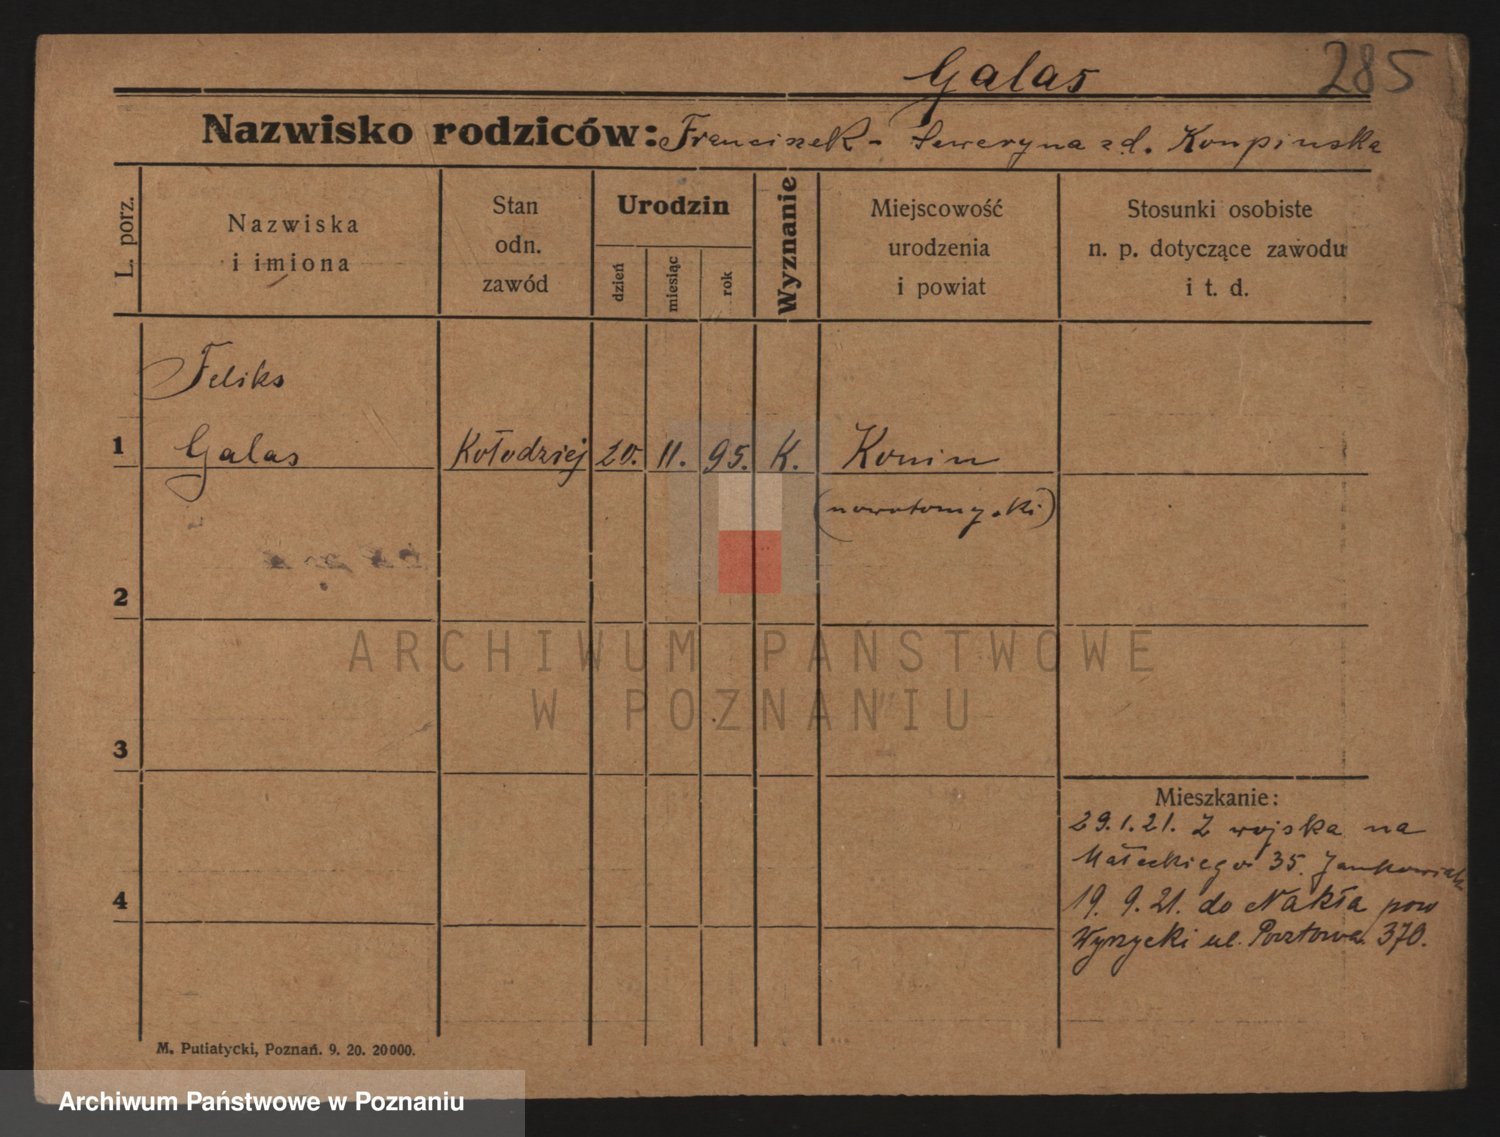 Galas
285
Nazwisko rodziców: Franciszek - Seweryna zd. Konpinska
L. porz.
Nazwiska
i imiona
Stan
odn.
zawód
Urodzin
dzień
miesiąc
rok
Wyznanie
Miejscowość
urodzenia
i powiat
Stosunki osobiste
n. p. dotyczące zawodu
i t. d.
Feliks
1 Galas Kołodziej 20. 11. 95. K. Konin
(nowotomyski)
2
ARCHIWUM PAŃSTWOWE
W POZNANIU
3
Mieszkanie:
29.1.21. Z wojska na
Małeckiego 35. Jankowiak
4
19. 9. 21. do Nakła pow
Wyrzycki ul. Pocztowa 370.
M. Putiatycki, Poznań. 9. 20. 20000.
Archiwum Państwowe w Poznaniu